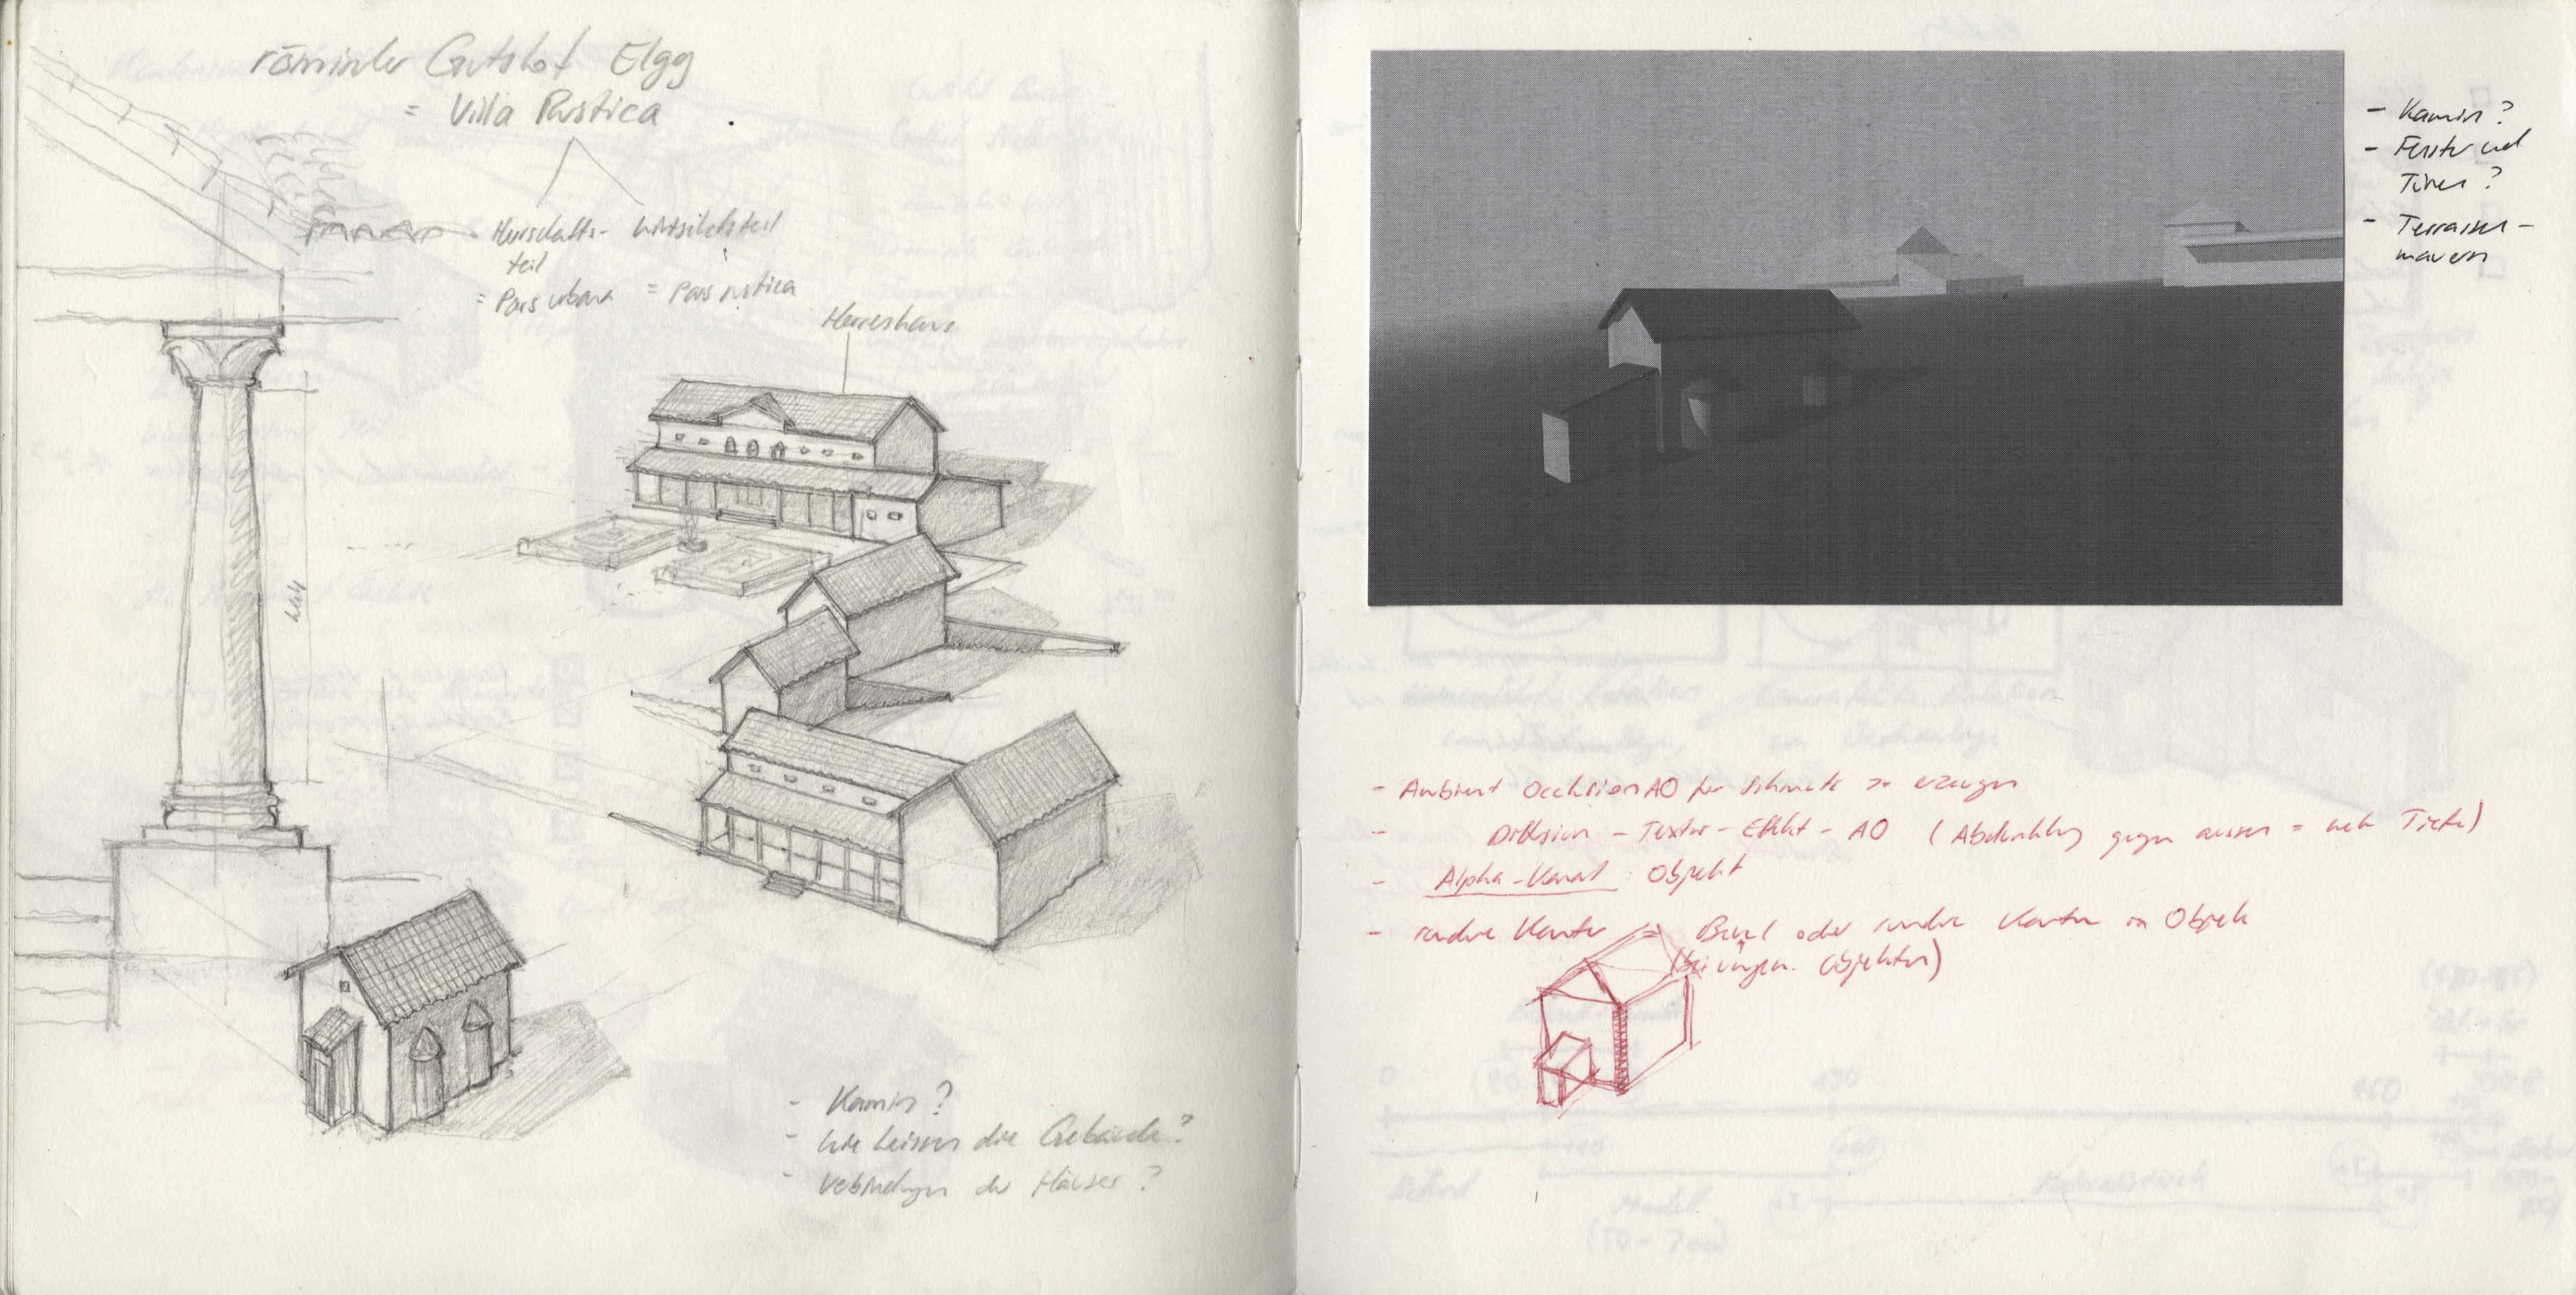 römischer Gutshof Elgg
= Villa Rustica
Herrschafts-
teil
= Pars urbana
Wirtschaftsteil
= Pars rustica
Herrenhaus
444
- Kamin?
- Wie heissen die Gebäude?
- Verbindungen der Häuser?
- Kamin?
- Fenster und
Türen?
- Terrassen-
mauern
- Ambient Occlusion AO für Schmutz zu erzeugen
- Diffusion - Textur - Effekt - AO (Abdunklung gegen aussen = mehr Tiefe)
- Alpha-Kanal Objekt
- runde Kanten = Bevel oder runde Kanten im Objekt
(bei Objekten)